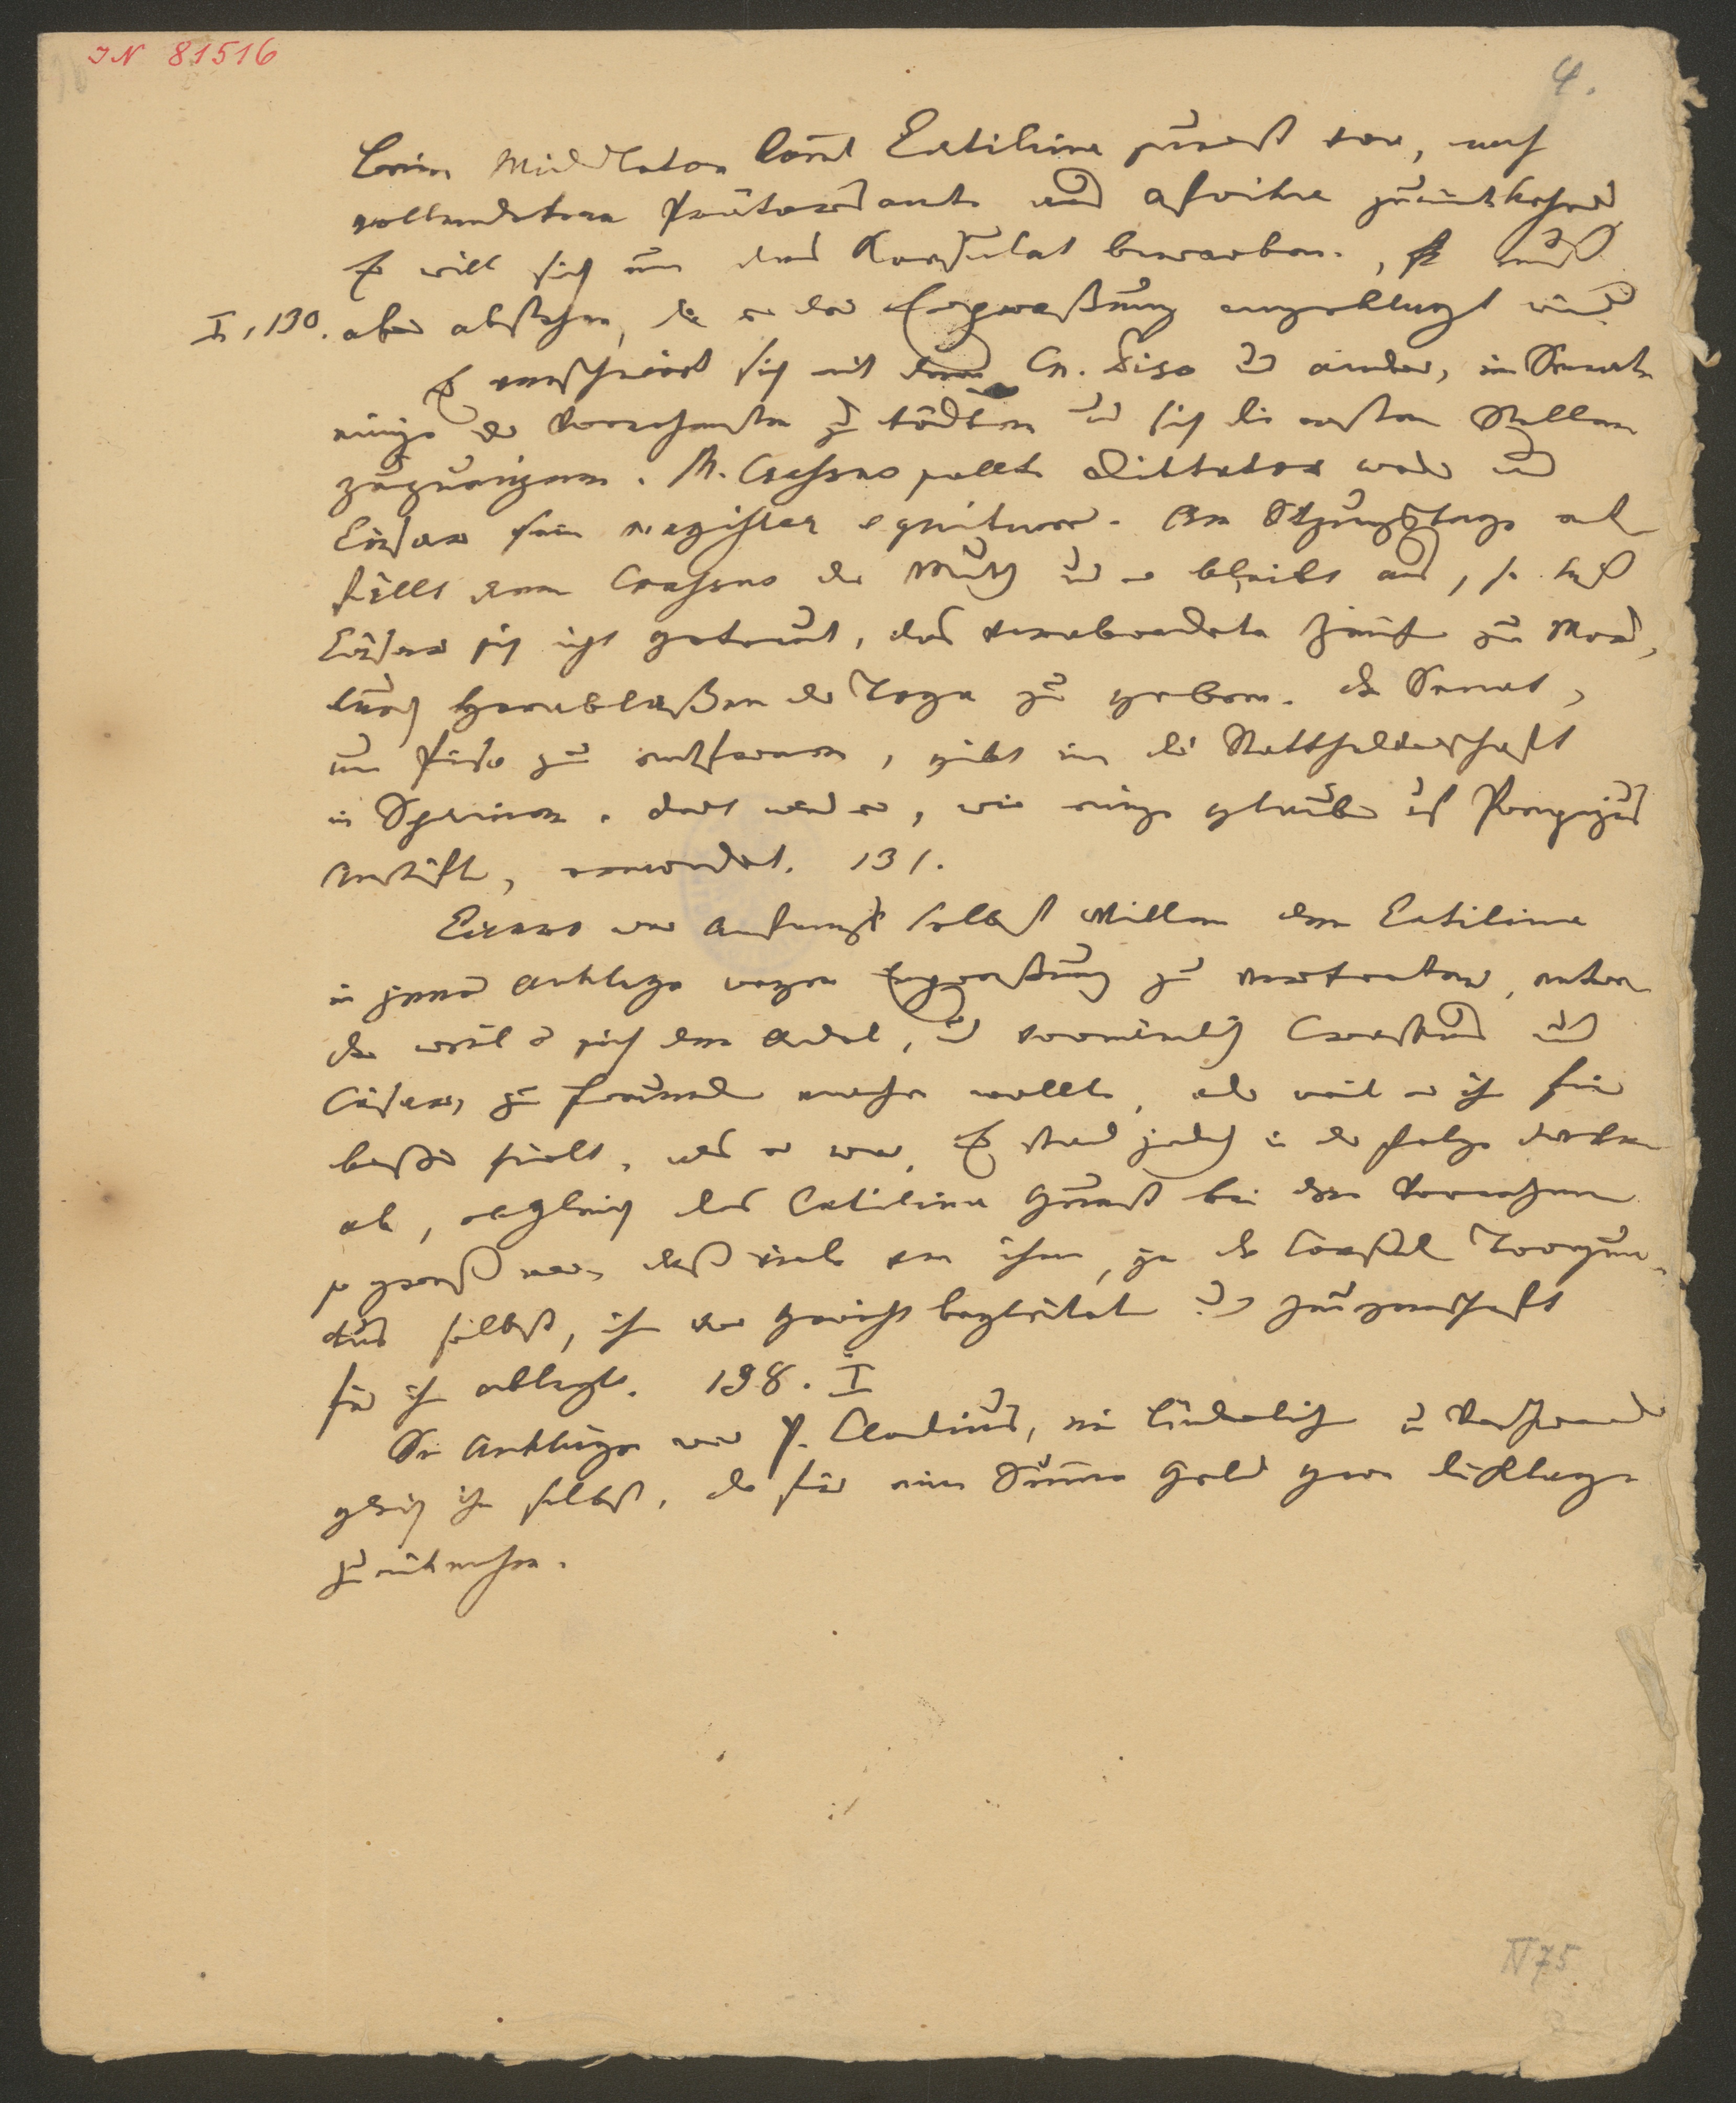 IN 81516
4.
Beim Middleton kömt Catilina zuerst vor, nach
vollendetem Prätorsamte aus Afrika zurückkehrend
Er will sich um das Konsulat bewerben, muß
I, 130. aber abstehen, da er der Erpressung angeklagt wird
Er verschwört sich mit dem Cn. Piso und andern, im Senate
einige der Vornehmsten zu tödten und sich die ersten Stellen
zuzueignen. M. Crassus sollte Diktator werden und
Cäsar sein magister equitum. Am Sitzungstage
fällt dem Crassus der Muth und er bleibt aus, so daß
Cäsar sich nicht getraut, das verabredete Zeichen zum Mord,
durch Herablassen der Toga zu geben. Der Senat,
um Piso zu entfernen, gibt im die Statthalterschaft
in Spanien. dort wird er, wie einige glauben auf Pompejus
Anstift, ermordet. 131.
Cicero war Anfangs selbst Willens den Catilina
in jener Anklage wegen Erpressung zu vertreten, entwe
der weil er sich den Adel, und vornämlich Crassus und
Cäsar, zu Freunde machen wollte, oder weil er ihn für
besser hielt, als er war. Er stand jedoch in der Folge davon
ab, obgleich des Catilina Gunst bei den Vornehmen
so groß war, daß viele von ihnen, ja der Consul Torqua-
tus selbst, ihn vor Gericht begleitete und Zeugenschaft
für ihn ablegte. 138. I
Der Ankläger war P. Clodius, ein liederlicher Verschwender
gleich ihm selbst, der für eine Summe Geld gern die Klage
zurücknahm.
N 75